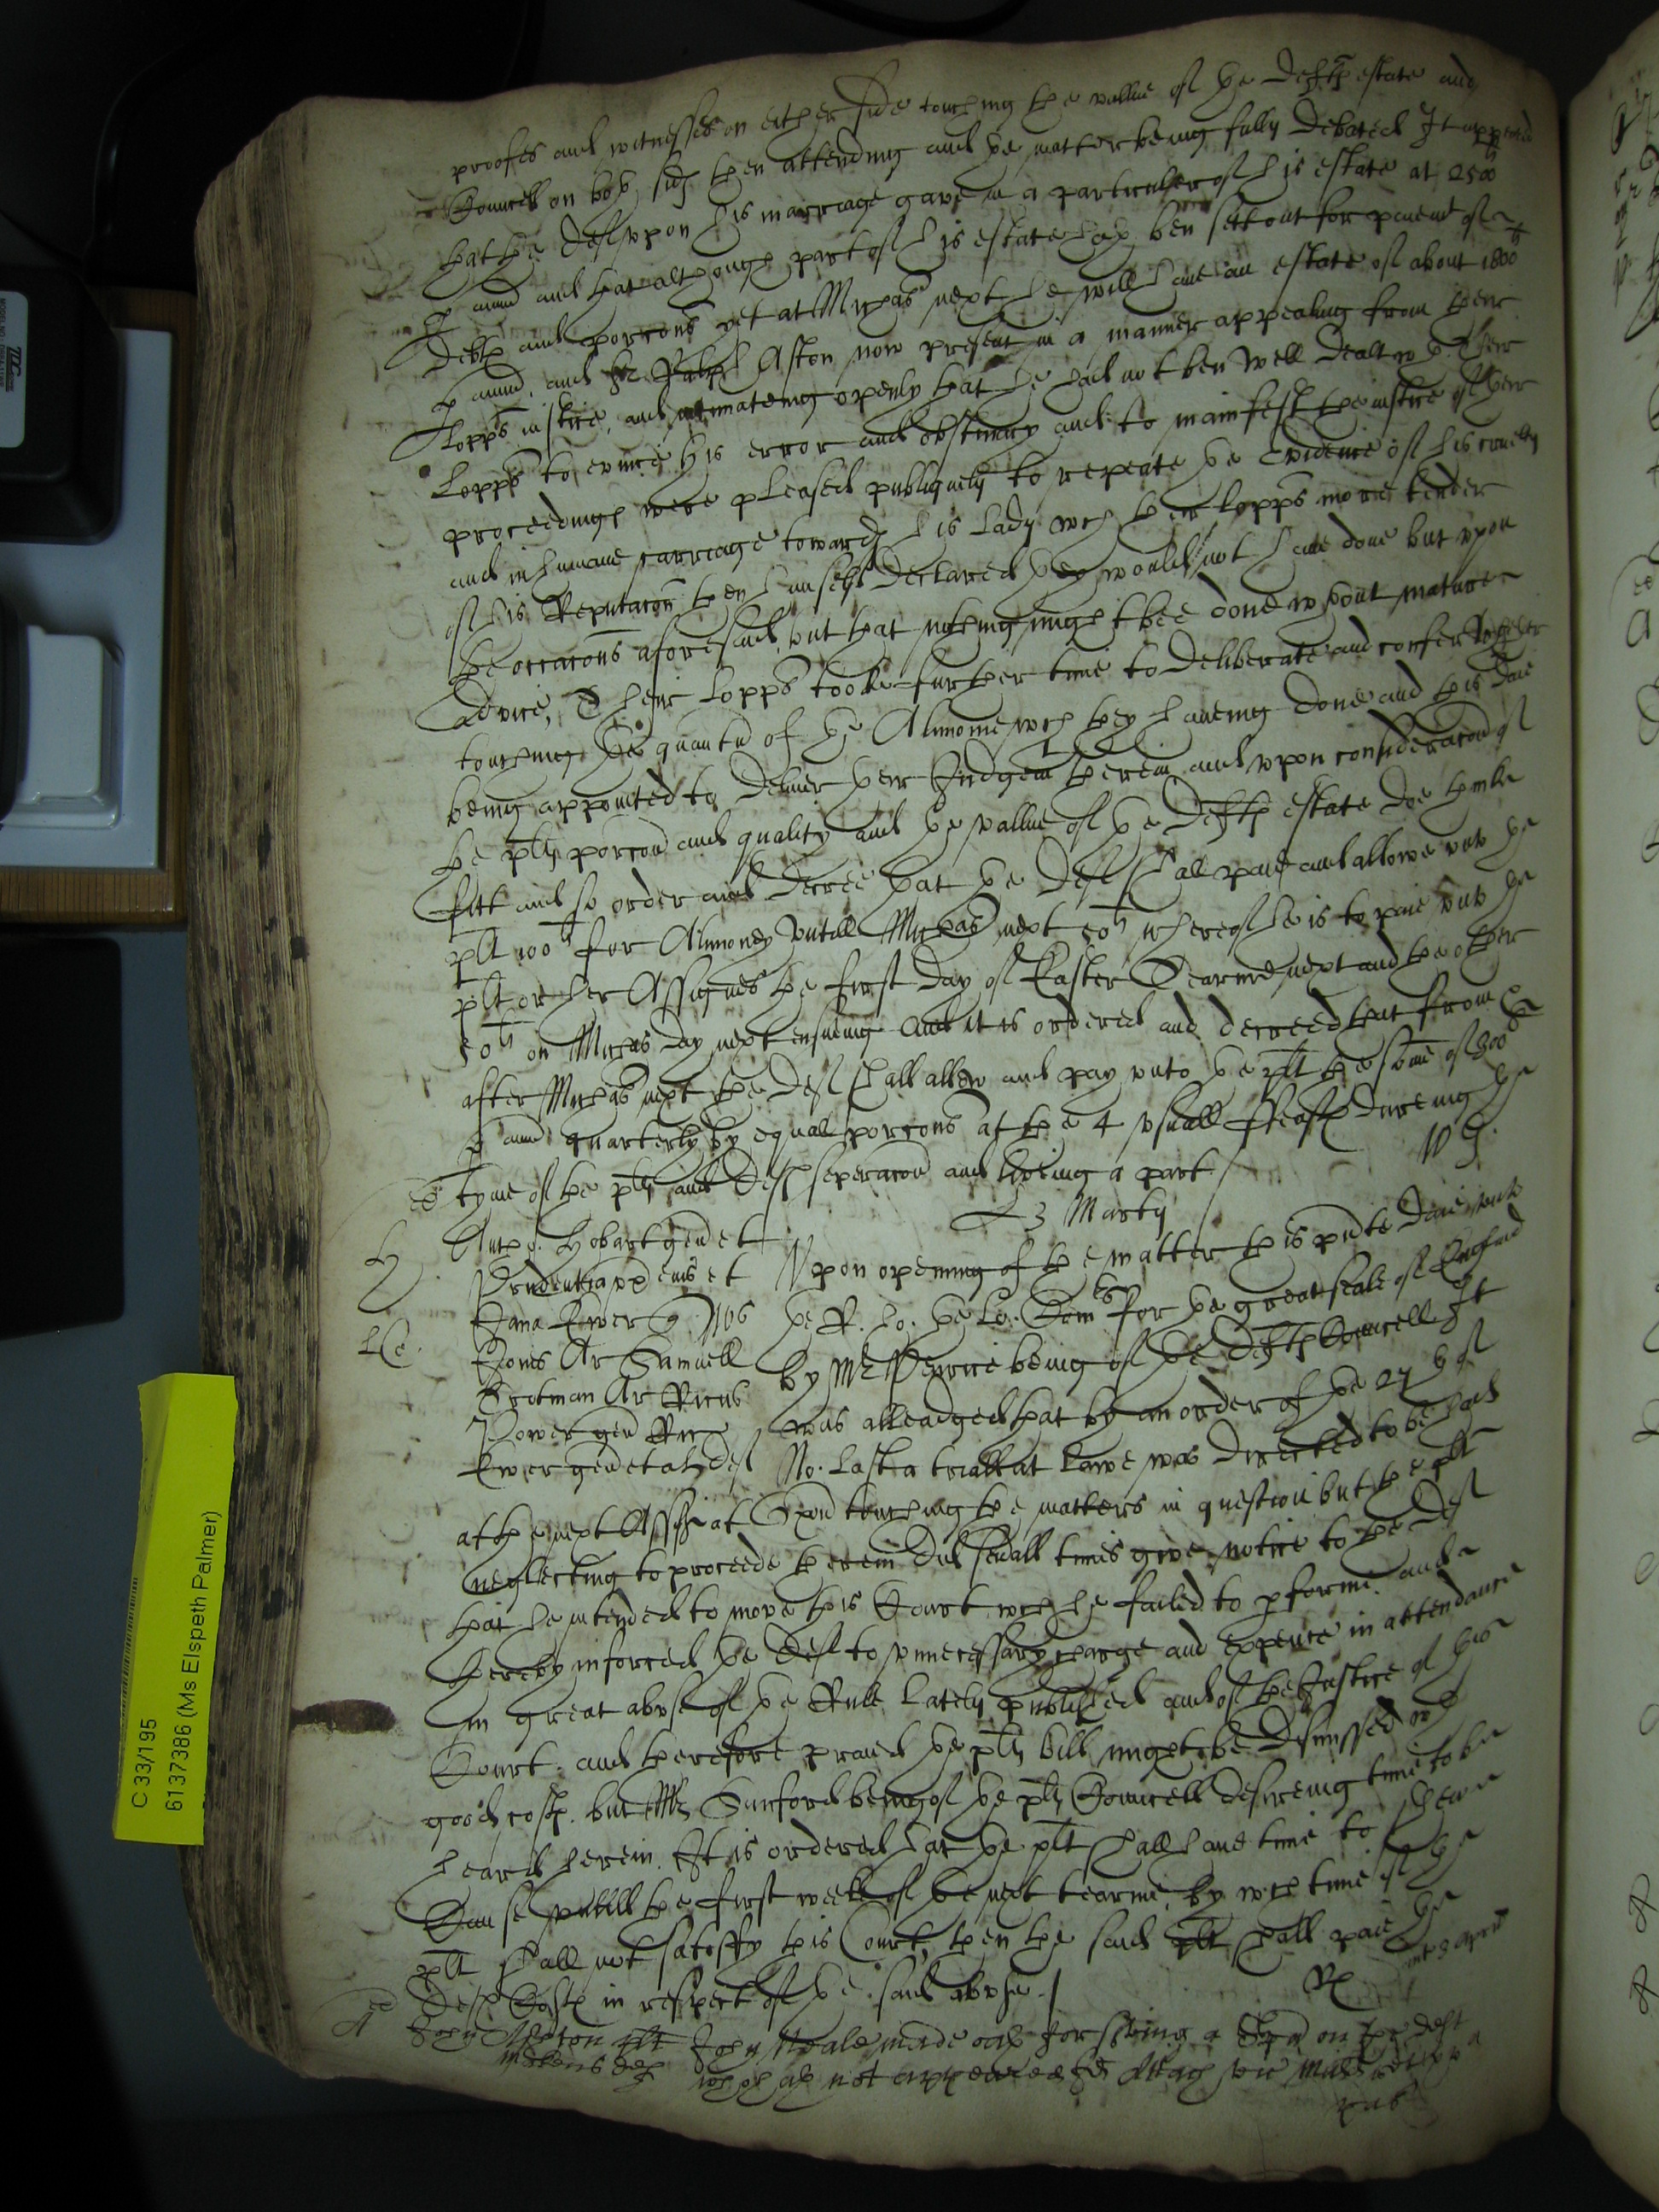 proofes and witnesses on either side touching the vallue of ye Defts estate and
Councell on both sides then attending and ye matter being fully debated It appeared
that the Deft upon his marriage gave in a particuler of his estate at 2500li
p annu and that although part of his estate hath ben sett out for paiemt of
Debts and porcons yet at Michas next he will have an estate of about 1800li
p annu, and Sr Ralph Aston now present in a manner appealing from their
Lopps iustice, and intimateing openly that he had not ben well dealt wth. Their
Lopps to evince his error and obstinacy and to manifest the iustice of their
proceedings were pleased publiquely to repeate ye Evidence of his cruelty
and inhumane carriage towards his Lady wch their Lopps more tender
of his Reputacon then himselfe declared they would not have done but upon
the occacons aforesaid, but that nothing might bee done wthout mature
advice, Their Lopps tooke further time to deliberate and confer together
touching ye quantu of ye Alimonie wch they haveing done and this daie
being appointed to deliver their Judgemt therein and upon consideracon of
the plts porcon and quality and ye vallue of ye Defts estate doe thinke
fitt and so order and decree that ye Deft shall paie and allowe unto ye
plt 100li for Alimoney untill Michas next 50li whereof he is to paie unto ye
plt or her Assignes the first day of Easter Tearme next and the other
50li on Michas day next ensueing And it is ordered and decreed that from &
after Michas next the Deft shall allow and pay unto ye plt the sume of 300li
p annu quarterly by equal porcons at the 4 usuall ffeasts dureing ye
tyme of the plts and Defts seperacon and liveing a part
W G.
23 Martij
H
LC
Antho. Hobart gen et
Prudentia ux eius et
Jana Ewer qu Nos
Johes Ar Samuell
Trotman Ar Ricus
Power gen Ricus
Ewer gen et al Def
Upon opening of the matter this pnte daie unto
ye R. ho. ye Lo. Comrs for ye great seale of England
by Mr Pearce being of ye Defts Councell It
was alleadged that by an order of ye 27th of
No. last a triall at Lawe was directed to be had
at the next Assizes at Oxon touching the matters in question but the plt
neglecting to proceede therein did sevall times give notice to the Deft
that he intended to move this Court wch he failed to pforme and
thereby inforced ye Deft to unnecessary charge and expence in attendance
in great abuse of ye Rule lately published and of the Justice of this
Court. and therefore praied ye plts bill might be dismissed wth
good costs. but Mr Sanford being of ye plts Councell desireing time to be
heard herein. It is ordered that ye plt shall have time to shew
Cause untill the first weeke of ye next tearme, by wch time if ye
plt shall not satisfy this Court, then the said plt shall paie ye
Deft Costs in respect of ye said abuse.
Rx
A
John Ashton plt John Neale made oath for serving a Spa on the deft
def who hath not appeared
C 33/195
61 37386 (Ms Elspeth Palmer)